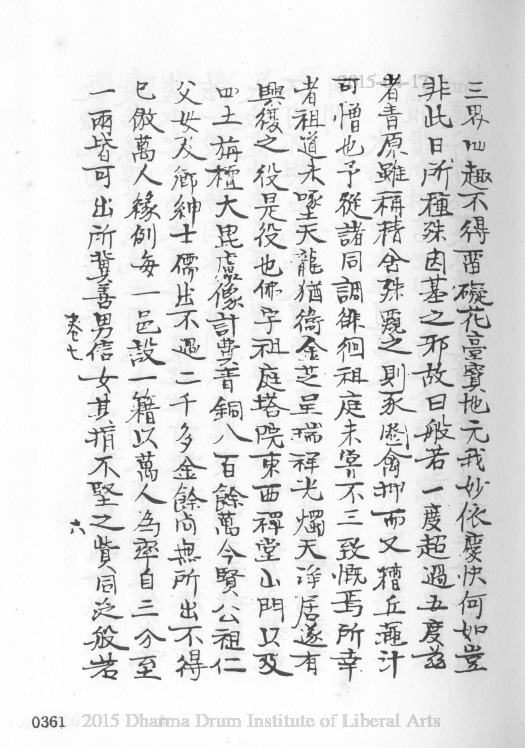 三界四趣不得留礙花臺寶地元我妙依慶快何如豈
非此日所種殊因基之邪故曰般若一度超過五度茲
者青原雖稱精舍殊窺之則豕圈禽柳而又糟丘薤汁
可憎也予從諸同調徘徊祖庭未嘗不三致慨焉所幸
者祖道未墜天龍猶衛金芝呈瑞祥光燭天淨居遂有
興復之役是役也佛宇祖庭塔院東西禪堂山門以及
四土旃檀大毘盧像計費青銅八百餘萬今賢公祖仁
父母及鄉紳士儒出不過二千多金餘尚無所出不得
已倣萬人緣例每一邑設一籍以萬人為率自三分至
一兩皆可出所冀善男信女其捐不堅之貲同泛般若
卷七
六
0361
2015 Dharma Drum Institute of Liberal Arts